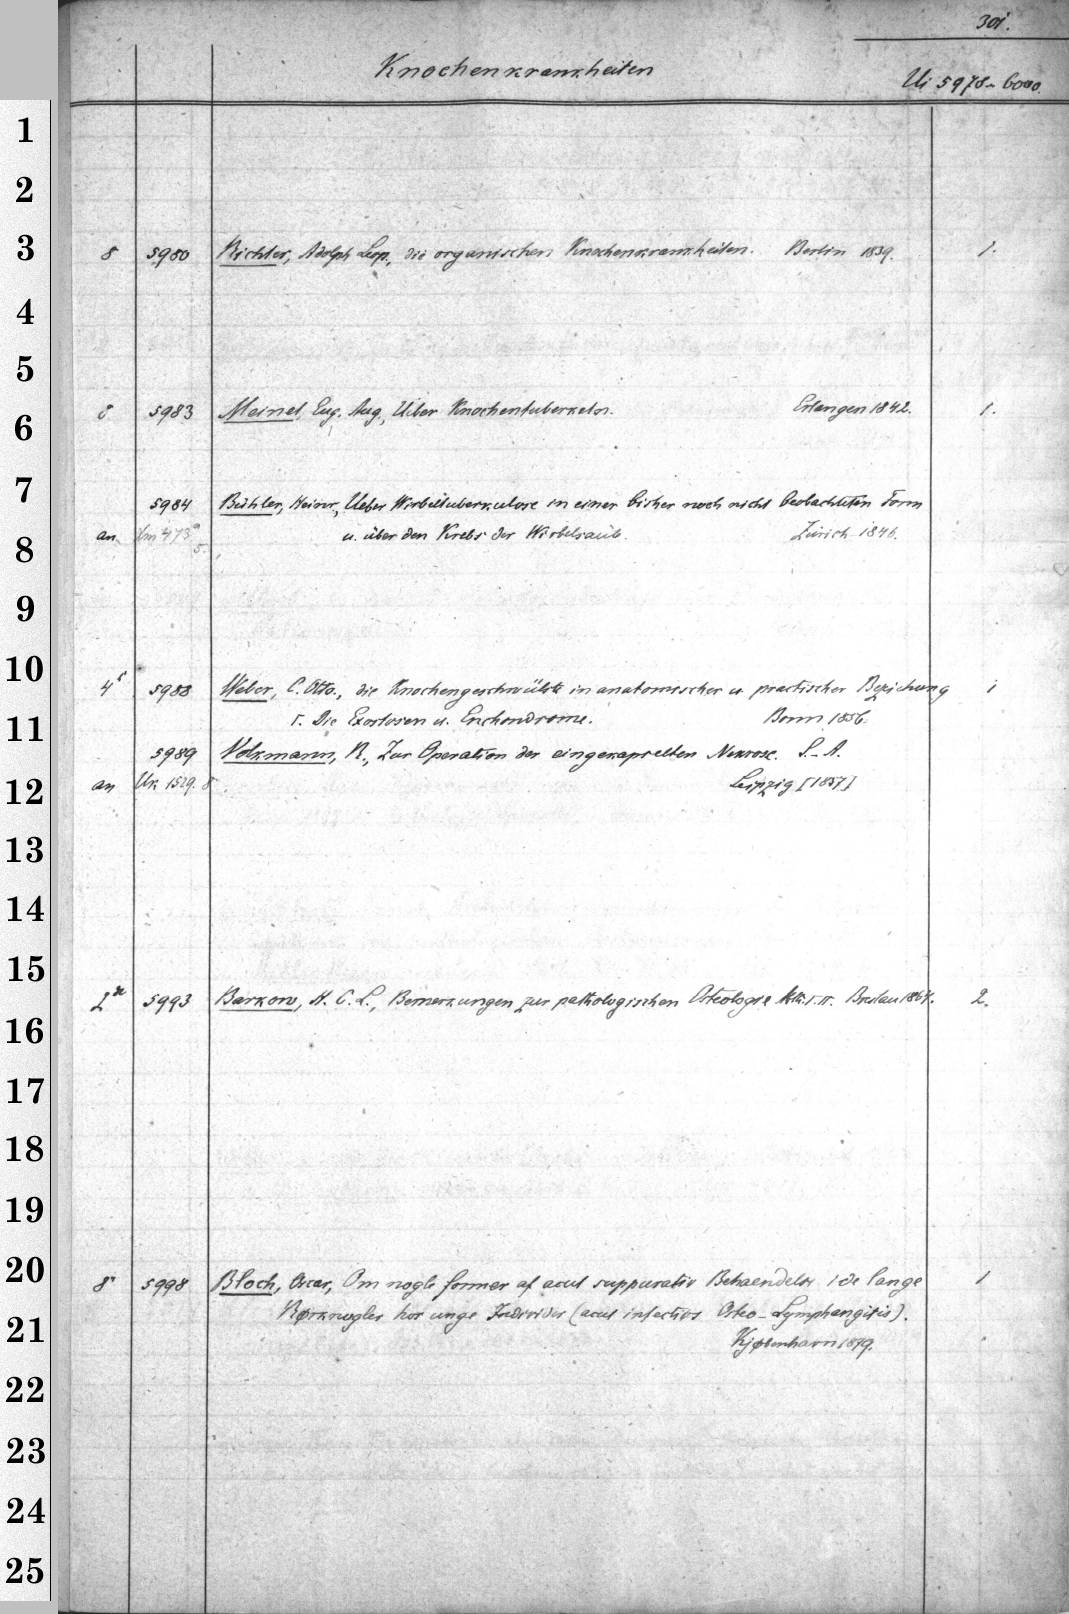 301.
Knochenkrankheiten
Ui 5978-6000.
1
2
3 8 5980 Richter, Adolph Leop., die organischen Knochenkrankheiten. Berlin 1839. 1.
4
5
6 8 5983 Meinel, Eug. Aug., Über Knochentuberkeln. Erlangen 1842. 1.
7 5984 Bühler, Heinr., Ueber Wirbeltuberkulose in einer bisher noch nicht beobachteten Form
8 an u. über den Krebs der Wirbelsäule. Zürich 1846.
9
10 4° 5988 Weber, C. Otto., die Knochengeschwülste in anatomischer u. practischer Beziehung 1
11 I. Die Exostosen u. Enchondrome. Bonn 1856.
5989 Volkmann, R., Zur Operation der eingekapselten Nekrose. S.-A.
12 an Uk 1529. 8 Leipzig [1857]
13
14
15
16 2° 5993 Barkow, H. C. L., Bemerkungen zur pathologischen Osteologie I. II. Breslau 1864. 2.
17
18
19
20 8° 5998 Bloch, Oscar, Om nogle former af acut suppurativ Behaendelse i de lange 1
21 Rørknogler hos unge Individer (acut infectiøs Osteo-Lymphangitis).
Kjøbenhavn 1879.
22
23
24
25